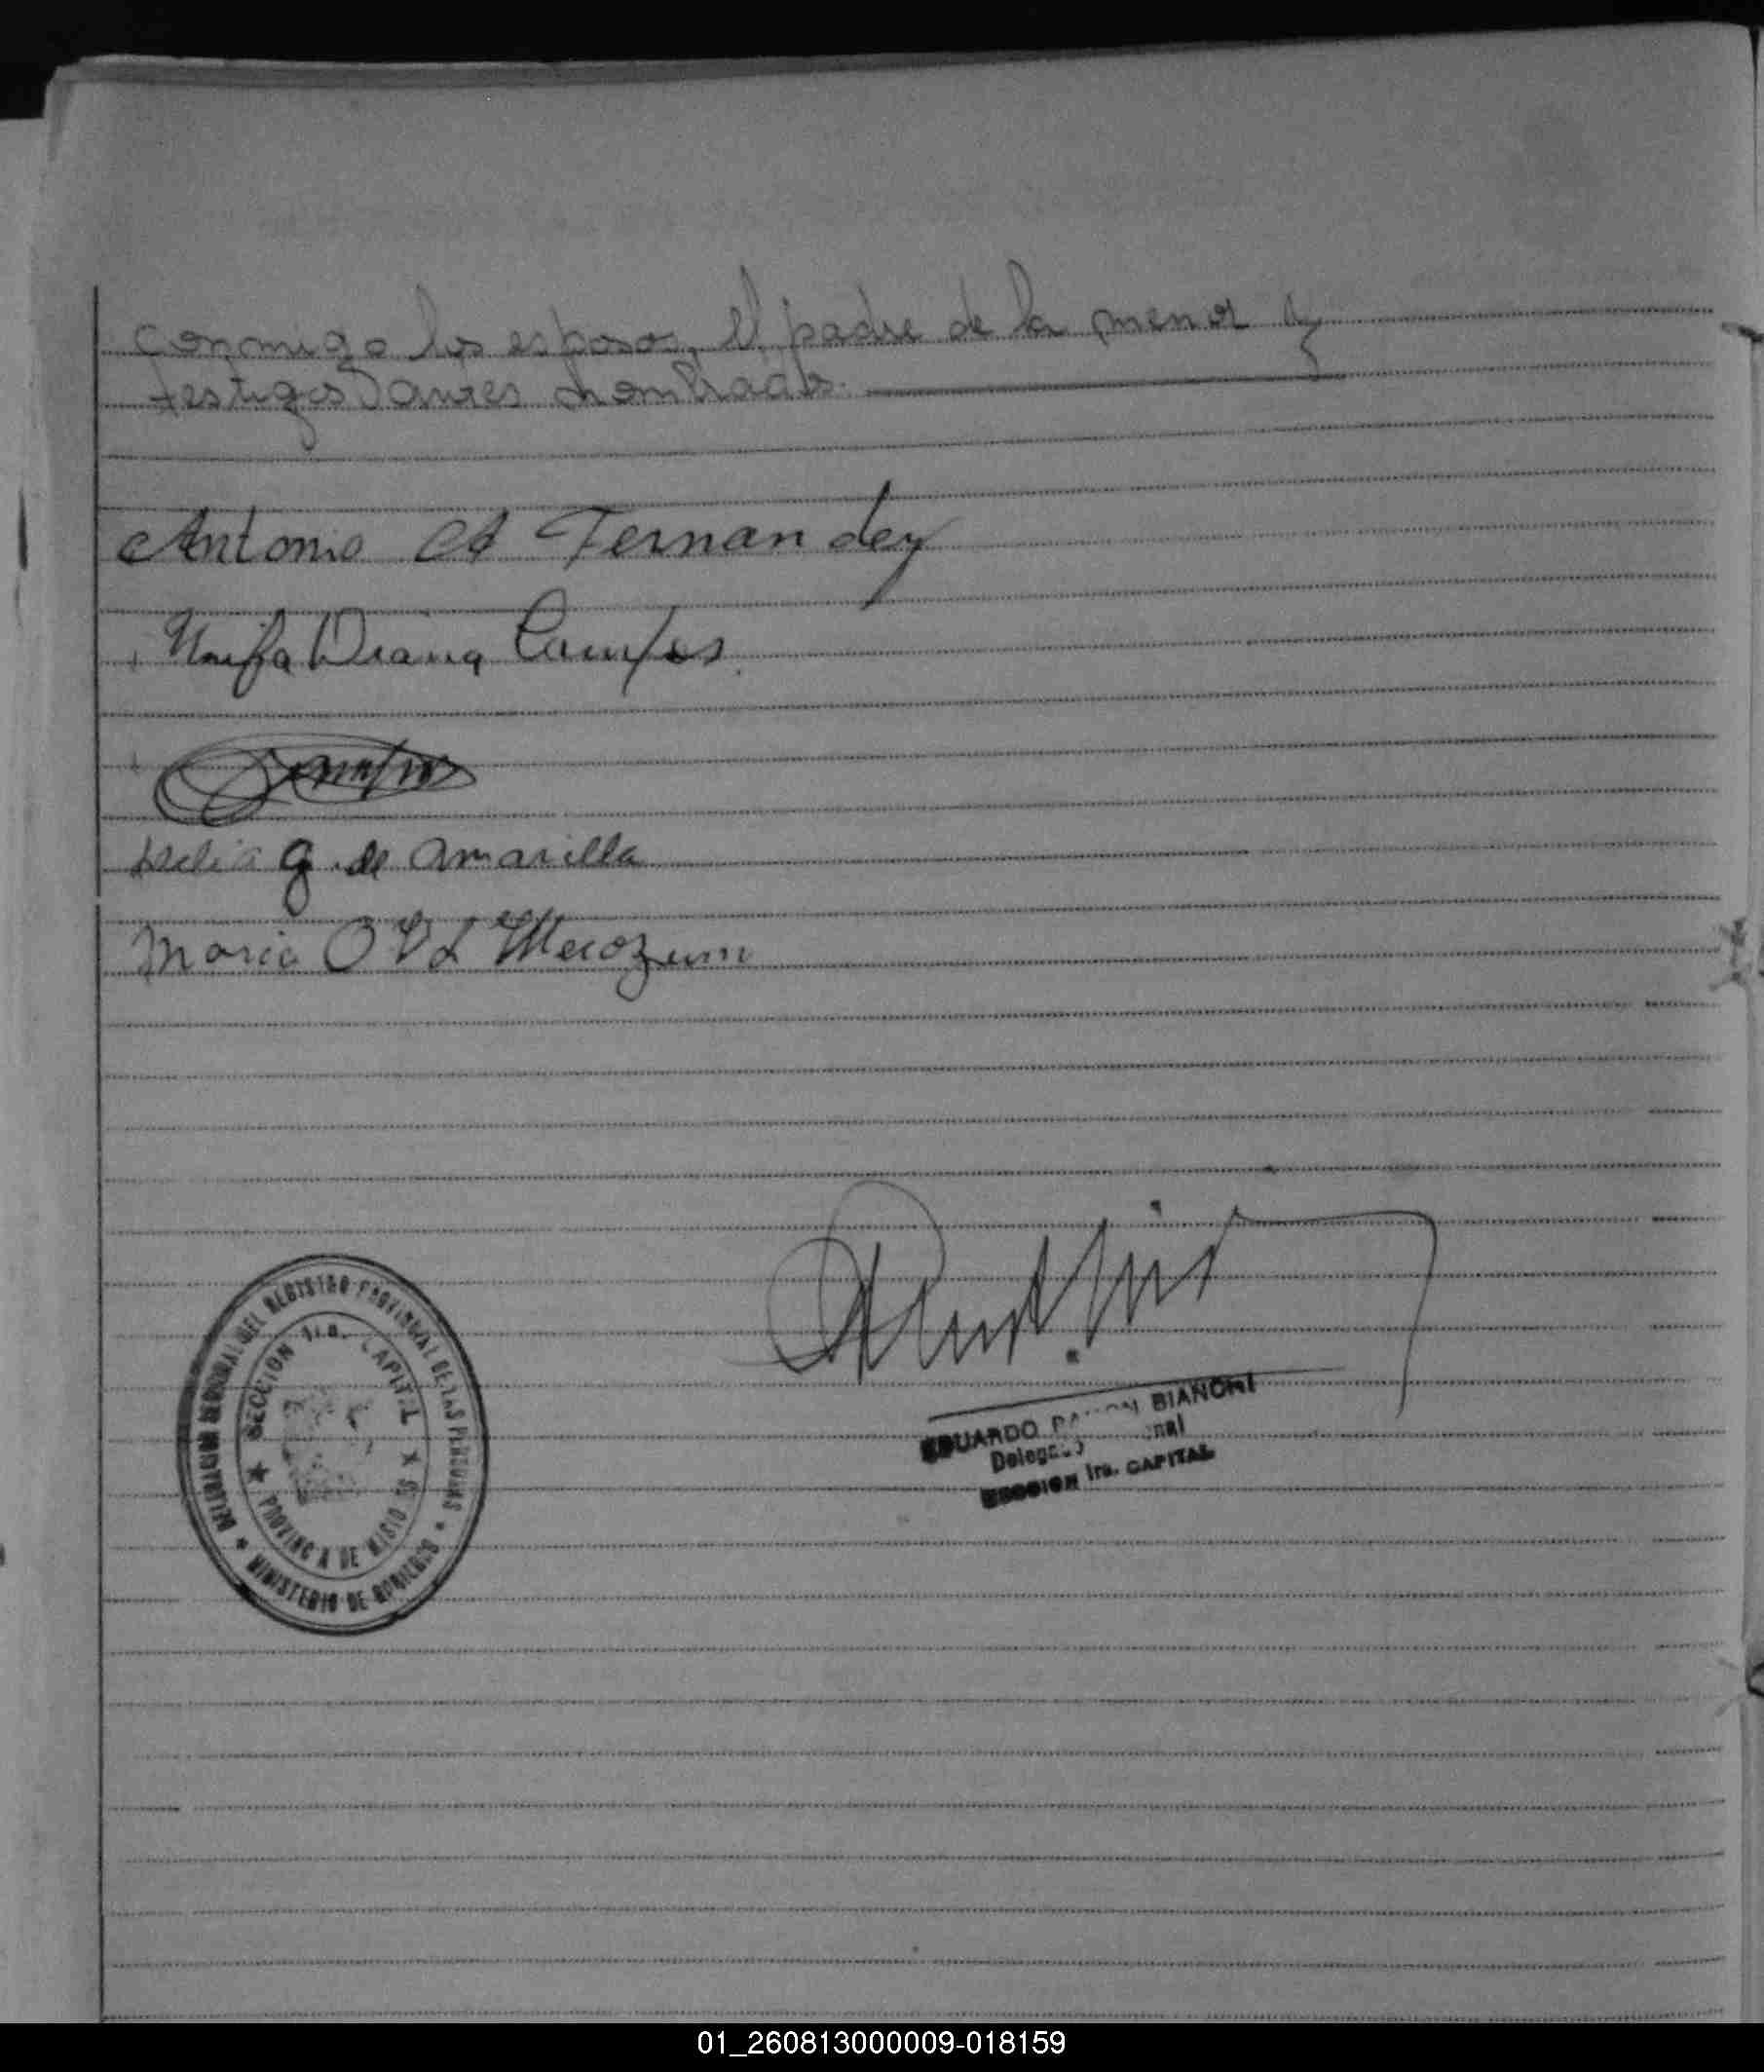 conmigo los esposos, el padre de la menor y
testigos antes nombrados.
Antonio A Fernandez
Diana Campos
Delia G. de Amarilla
Maria O V d
DEL REGISTRO PROVINCIAL DE LAS PERSONAS
MINISTERIO DE GOBIERNO
SECCION 1ra. CAPITAL
PROVINCIA DE MISIO
EDUARDO RAMON BIANCHI
Delegado
SECCION 1ra. CAPITAL
01_260813000009-018159